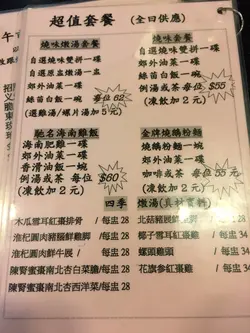 超值套餐 (全日供應)
燒味燉湯套餐
自選燒味雙拼一碟
自選原盅燉湯一盅
郊外油菜一碟
絲苗白飯一碗 每位62
(選雞湯/螺片湯加5元)
燒味套餐
自選燒味雙拼一碟
郊外油菜一碟
絲苗白飯一碗
例湯或茶 每位$55
(凍飲加2元)
馳名海南雞飯
海南肥雞一碟
郊外油菜一碟
香滑油飯一碗
例湯或茶 每位 $60
(凍飲加2元)
金牌燒鵝粉麵
燒鵝粉麵一碗
郊外油菜一碟
咖啡或茶 每位$55
(凍飲加2元)
四季燉湯(真材實料)
木瓜雪耳紅棗排骨 / 每盅 28
淮杞圓肉豬腦鮮雞脚 / 每盅 28
淮杞圓肉鮮牛𦟌 / 每盅 28
陳腎蜜棗南北杏白菜膽/每盅 28
陳腎蜜棗南北杏西洋菜/每盅 28
椰子雪耳紅棗雞 /每盅 34
螺頭雞頭 / 每盅 34
花旗參紅棗雞 / 每盅 34